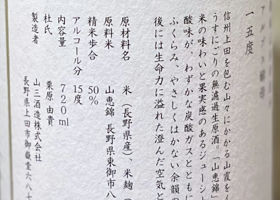 一五度
信州上田を包む山々にかかる山霞をイ
うすにごりの無濾過生原酒「山恵錦」
米の味わいと果実感のあるジューシー
酸味が、わずかな炭酸ガスとともに
ふくらみ、やさしくはかない余韻の
後には生命力に溢れた澄んだ空気と
原材料名 米(長野県産)米麹
原料米 山恵錦 長野県東御市八
精米歩合 50%
アルコール分 15度
内容量 720ml
杜氏 栗原由貴
製造者 山三酒造株式会社
長野県上田市御嶽堂六八